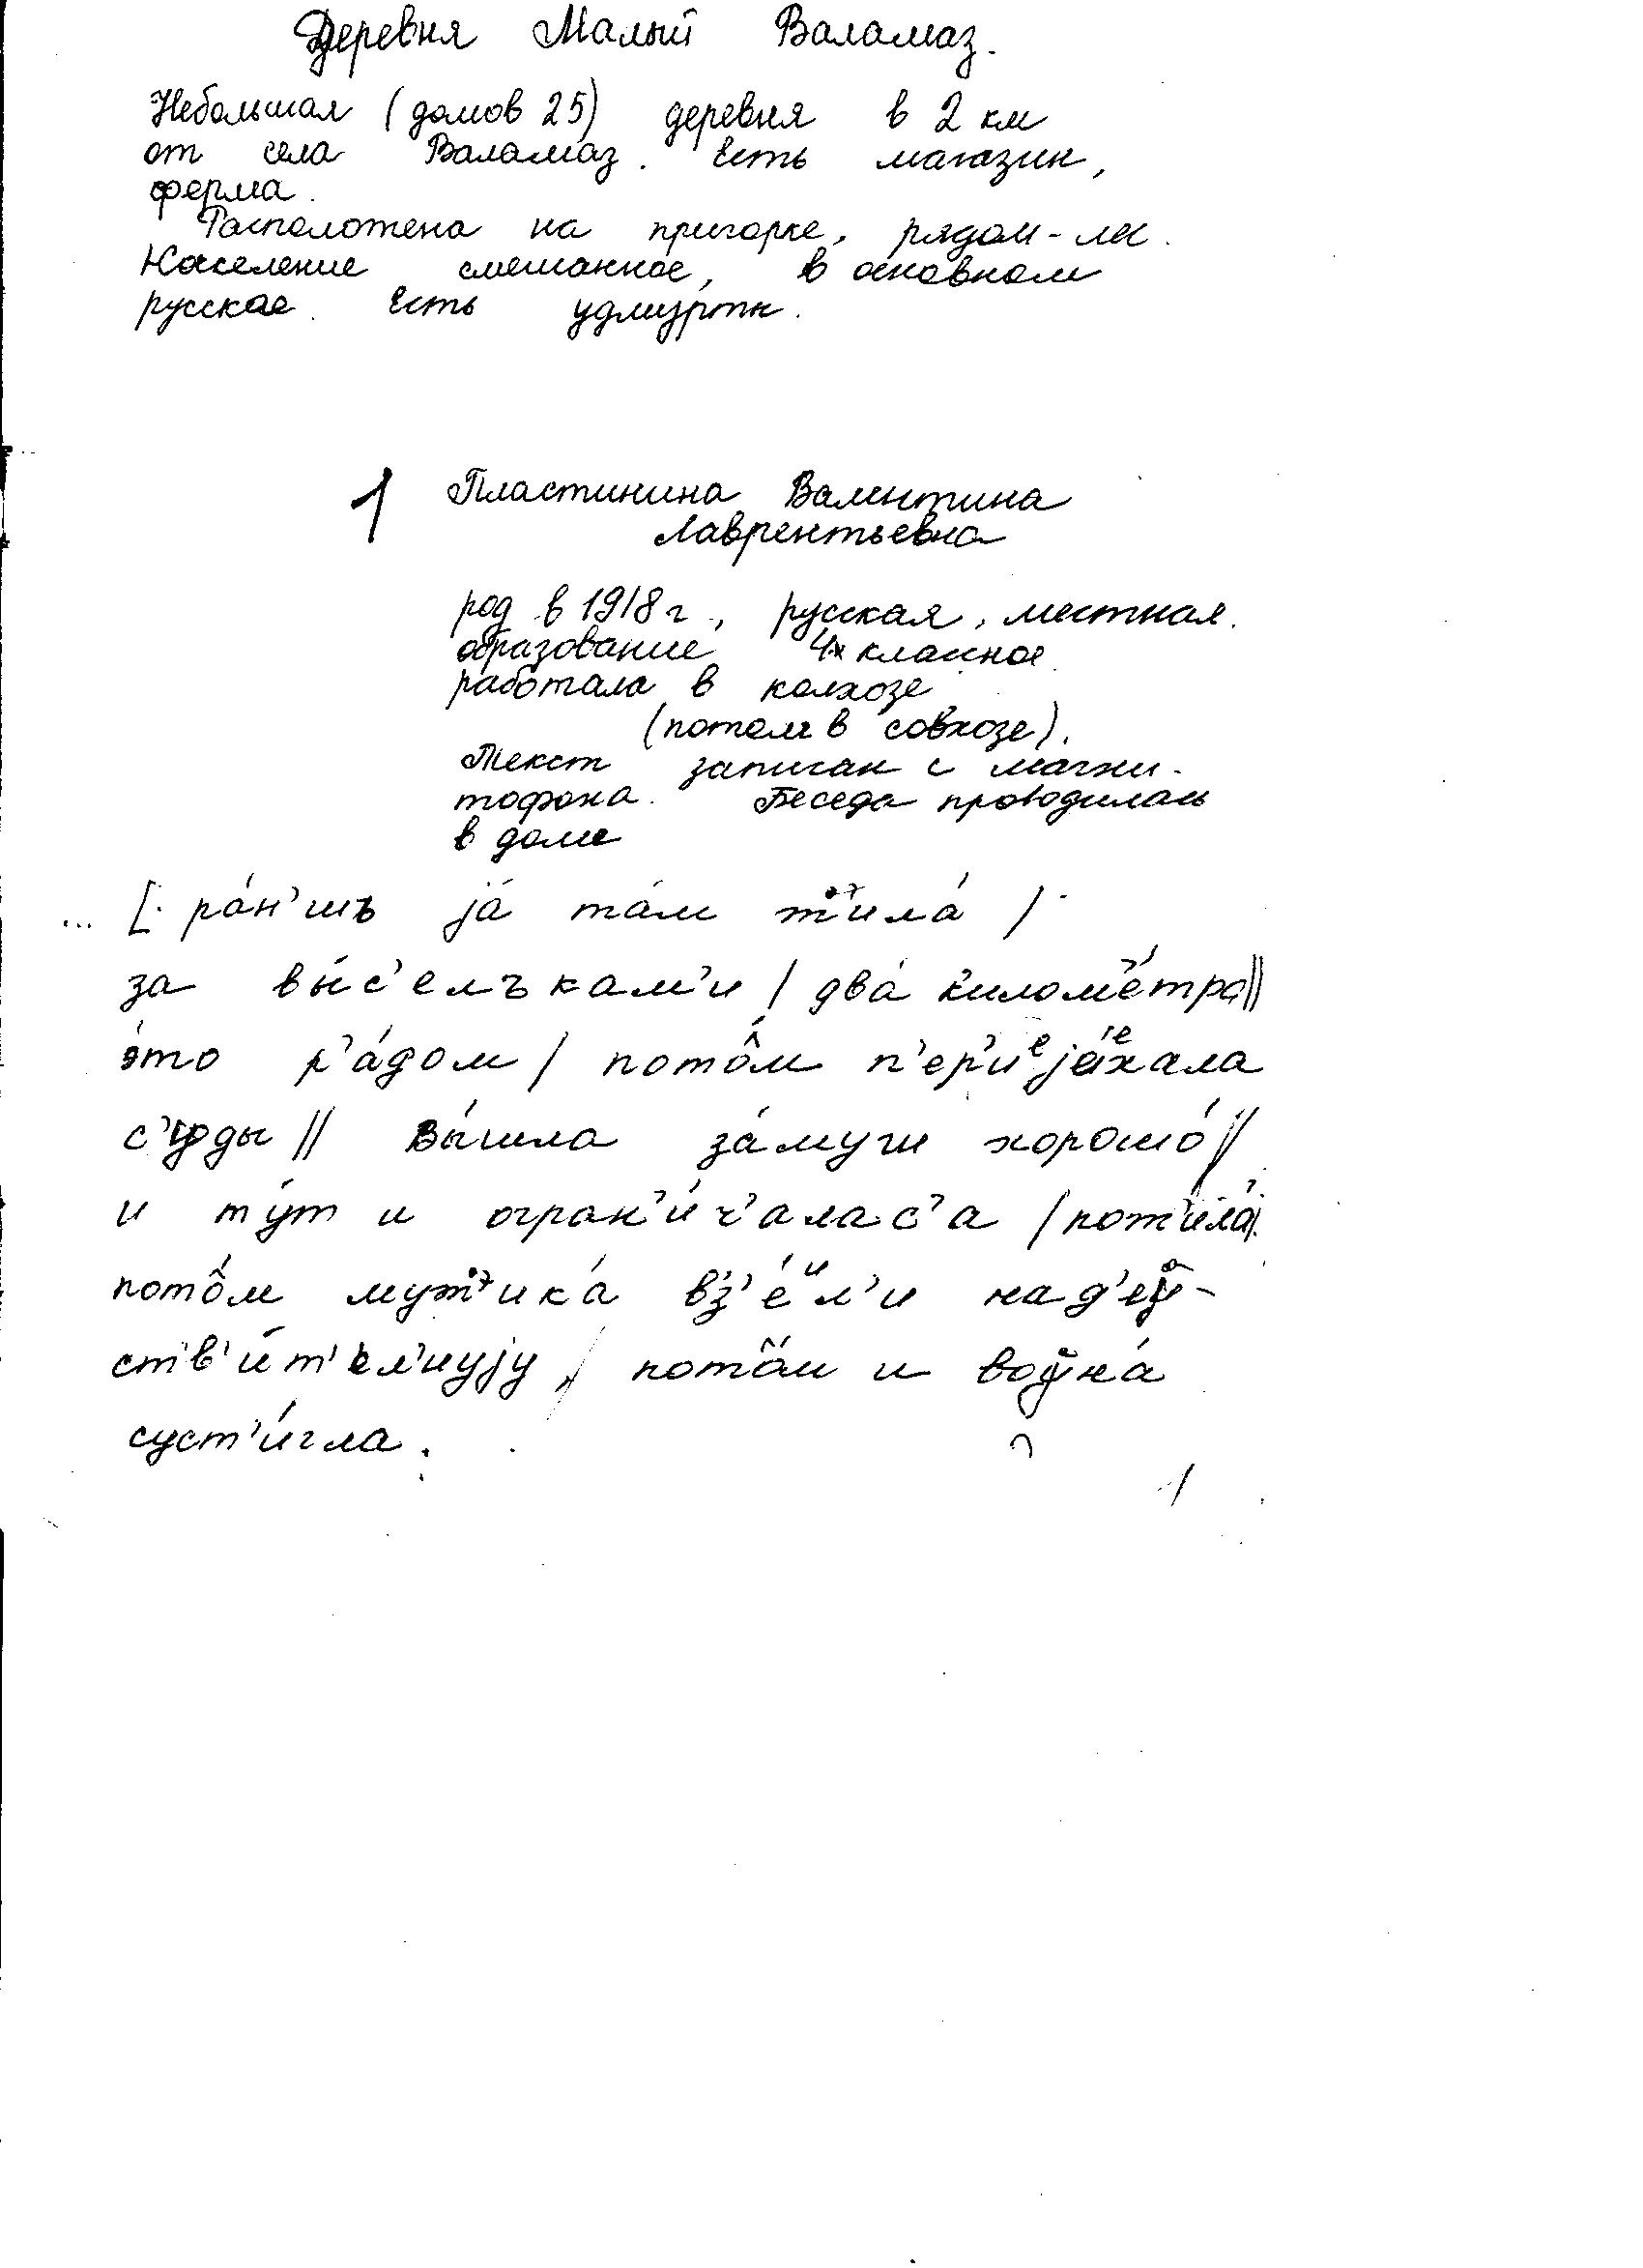 Деревня Малый Валамаз.
Небольшая (домов 25) деревня в 2 км
от села Валамаз. Есть магазин,
ферма.
Расположена на пригорке, рядом - лес.
Население смешанное, в основном
русское. Есть удмурты.
1 Пластинина Валентина
Лаврентьевна
род в 1918 г., русская, местная.
образование 4х классное
работала в колхозе
(потом в совхозе).
Текст записан с магни-
тофона. Беседа проводилась
в доме
... [ ра́н'шъ jа́ та́м жила́ /
за вы́с'елъкам'и / два́ килом'е́тра //
э́то р'а́дом / пото̂́м п'ер'иᵉjе́хала
с'уды // вы́шла за́муш хорошо́ //
и ту́т и огран'и́ч'алас'а / пожила́
пото̂́м мужика́ вз'е́л'и на д'ей-
ств'и́т'ел'нуjу / пото̂́м и война́
суст'и́гла.